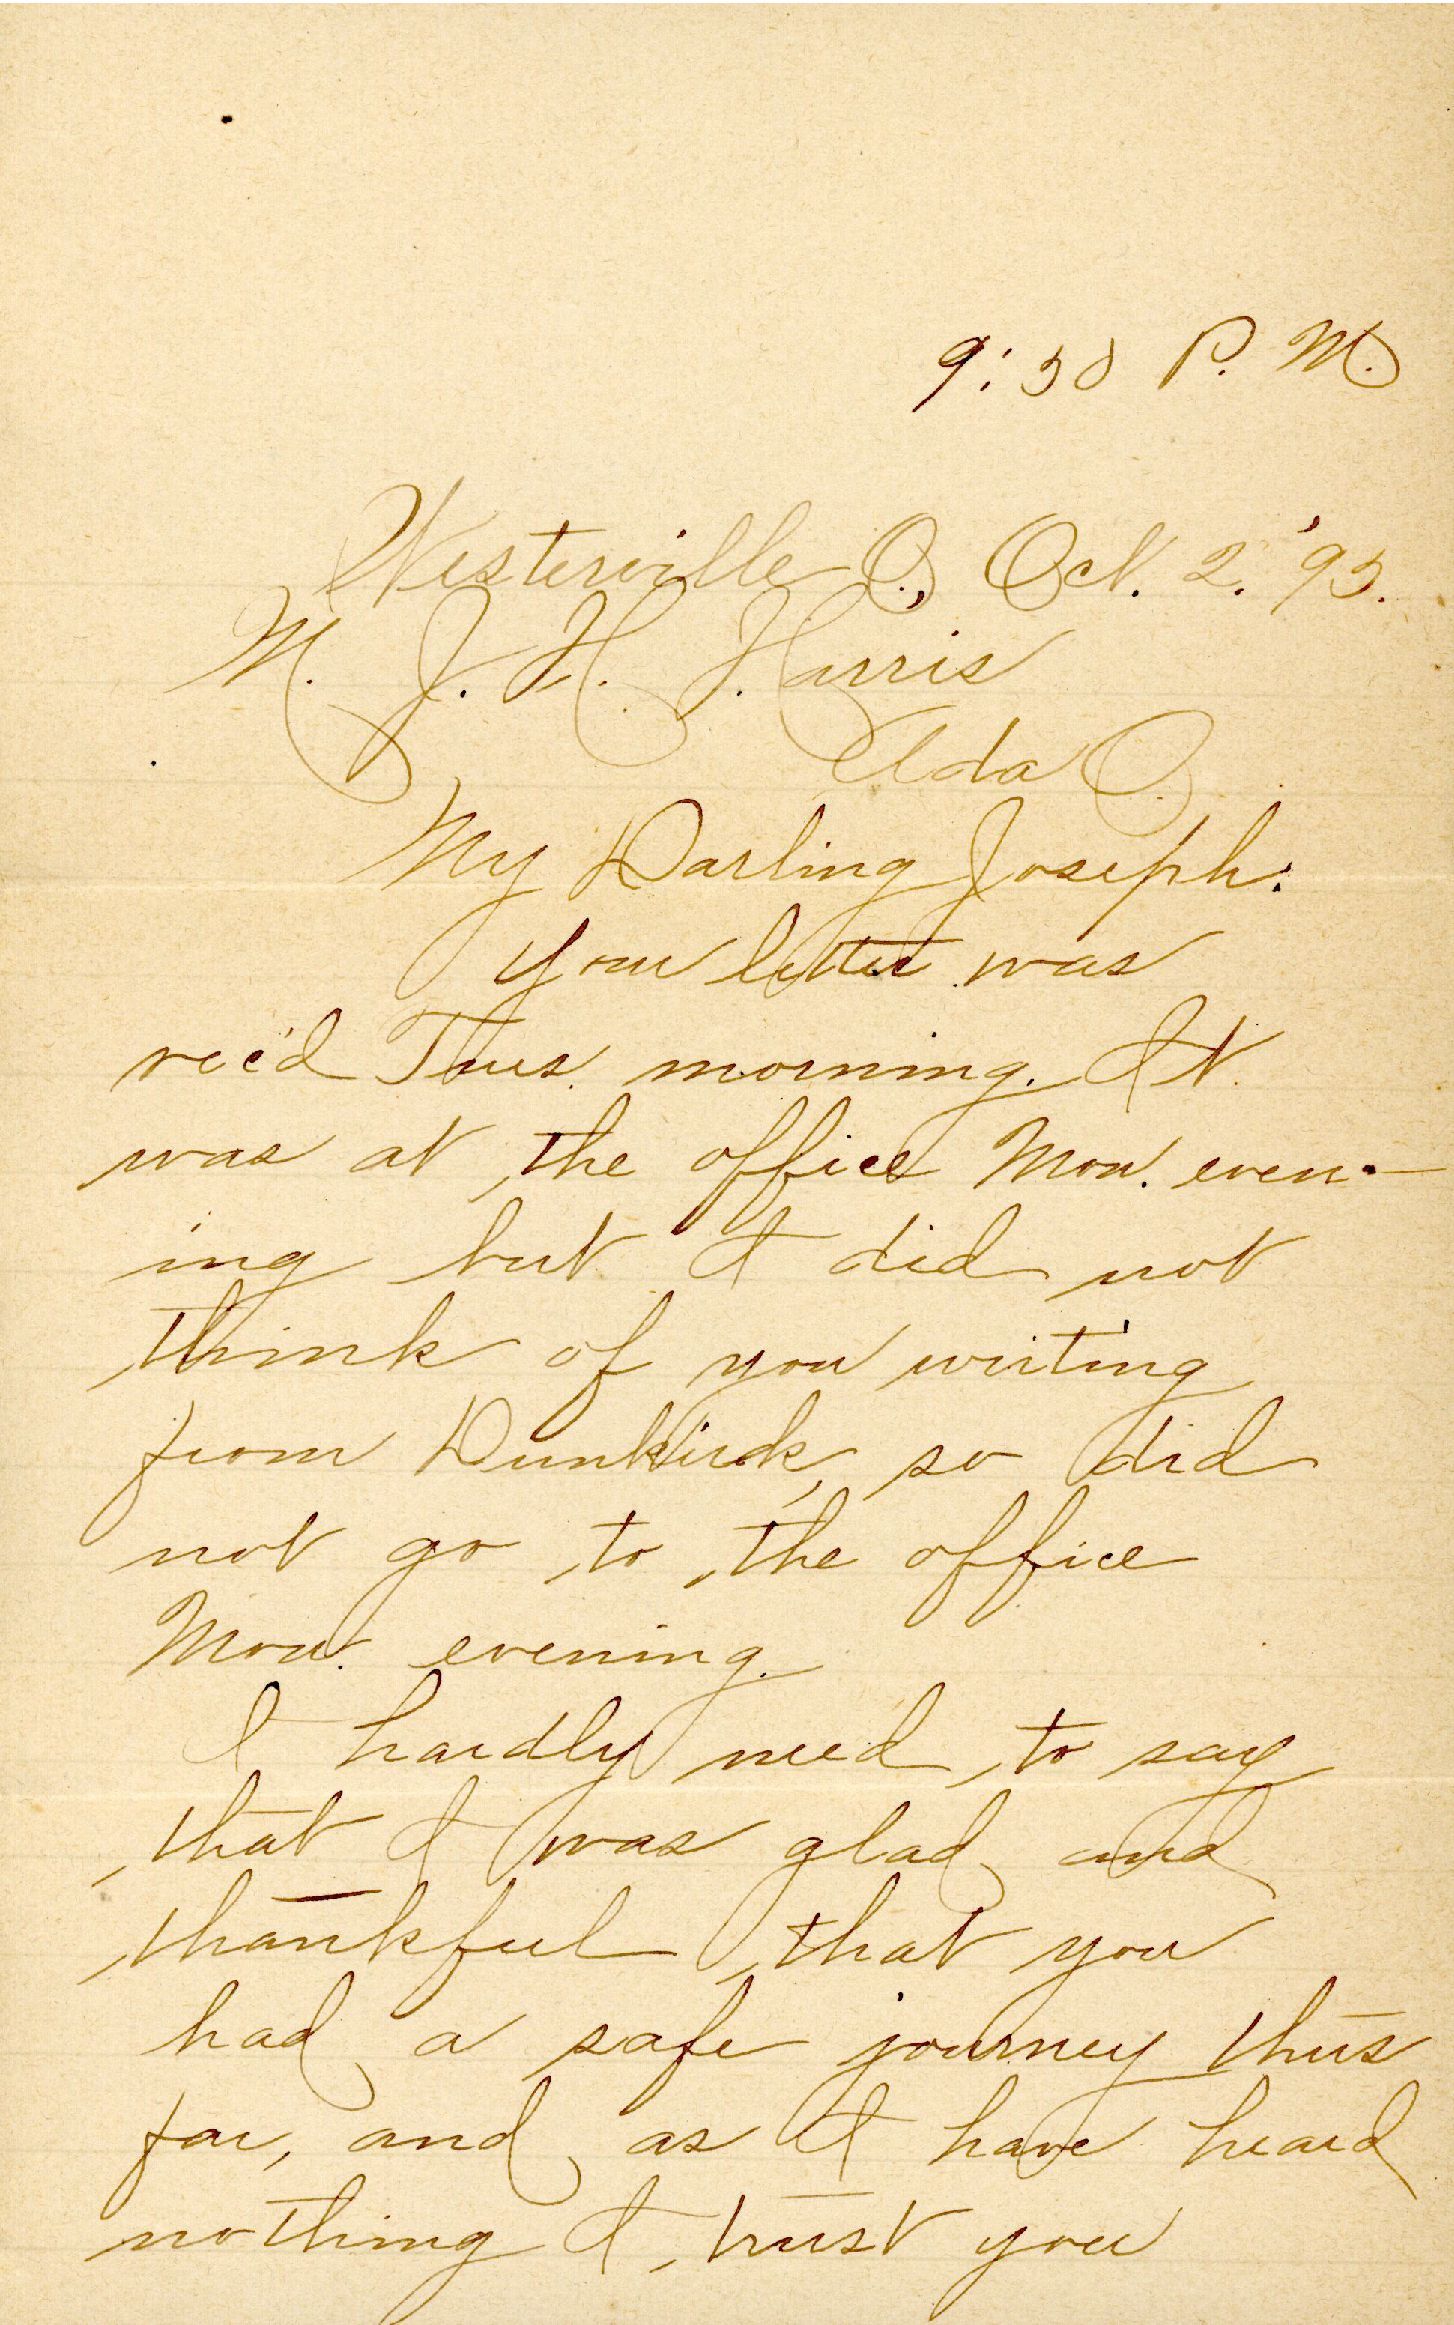 9:50 P. M.
Westerville O., Oct. 2. '95.
M. J. H. Harris
Ada O.
My Darling Joseph:
Your letter was
rec'd Tues. morning. It
was at the office Mon. even-
ing but I did not
think of you writing
from Dunkirk, so did
not go to the office
Mon. evening.
I hardly need to say
that I was glad and
thankful that you
had a safe journey thus
far, and as I have heard
nothing I trust you